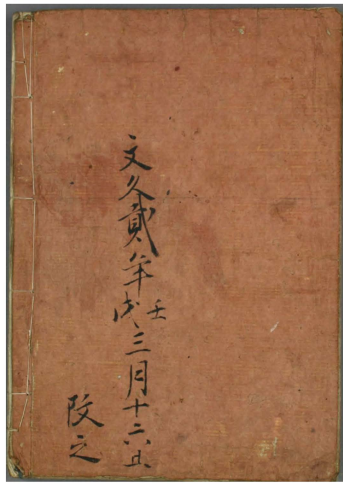 文久貳年壬戌三月十
改之